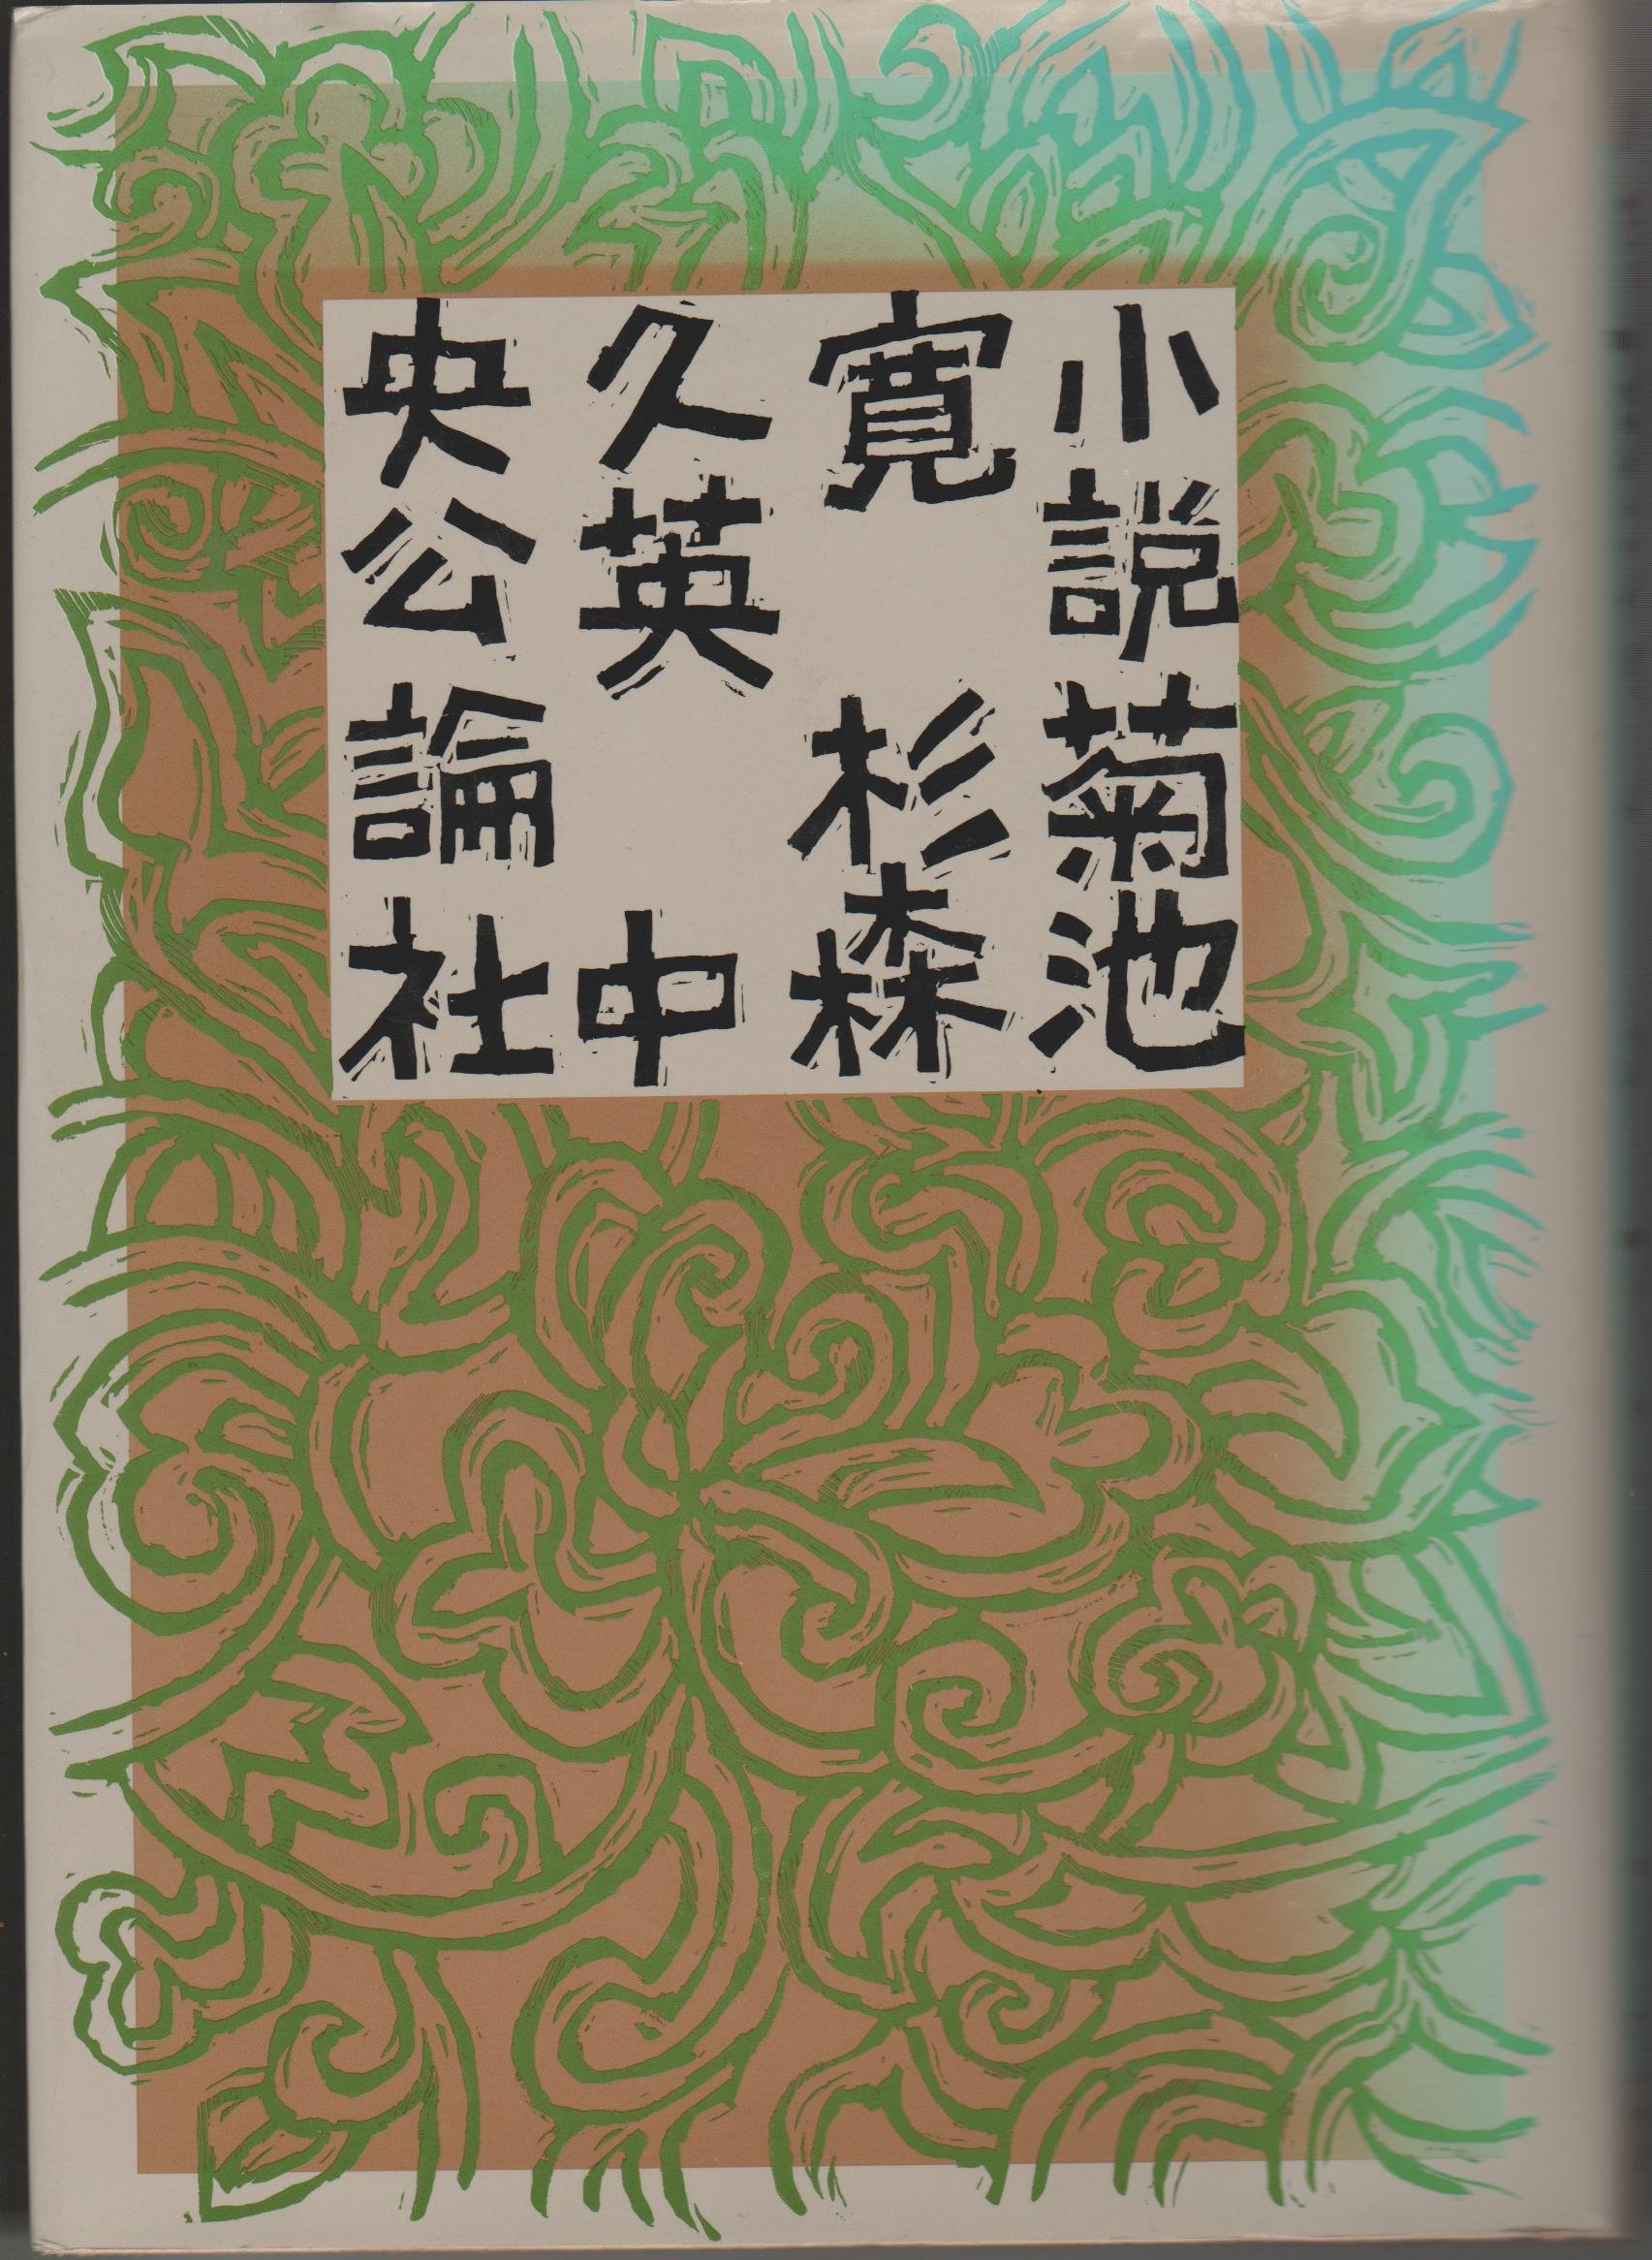 小説菊池
寛 杉森
久英 中
央公論社